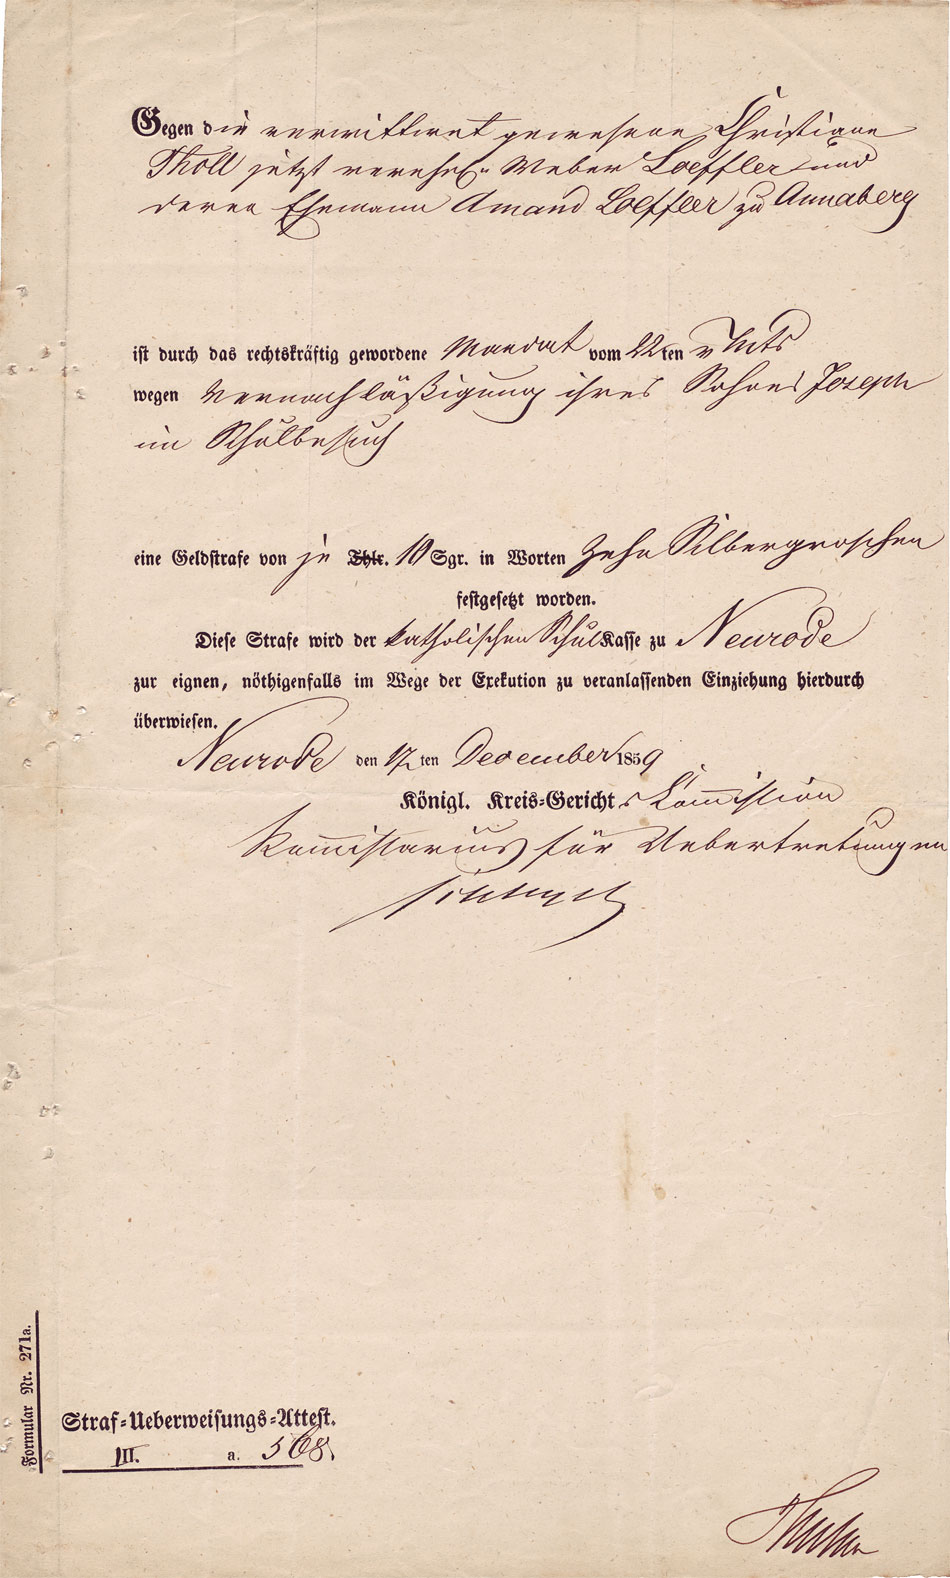 Gegen die verwittwet gewesene Christiane
Tholl jetzt verehel. Weber Loeffler und
deren Ehemann Amand Loeffler zu Annaberg
ist durch das rechtskräftig gewordene Mandat vom 22ten v Mts
wegen Vernachläßigung ihres Sohnes Joseph
im Schulbesuch
eine Geldstrafe von je Thlr. 10 Sgr. in Worten Zehn Silbergroschen
festgesetzt worden.
Diese Strafe wird der katholischen Schulkasse zu Neurode
zur eignen, nöthigenfalls im Wege der Exekution zu veranlassenden Einziehung hierdurch
überwiesen.
Neurode den 17ten December 1859
Königl. Kreis-Gerichts Kommission
Kommissarius für Uebertretungen
Formular Nr. 271a.
Straf-Ueberweisungs-Attest.
III. a. 568.